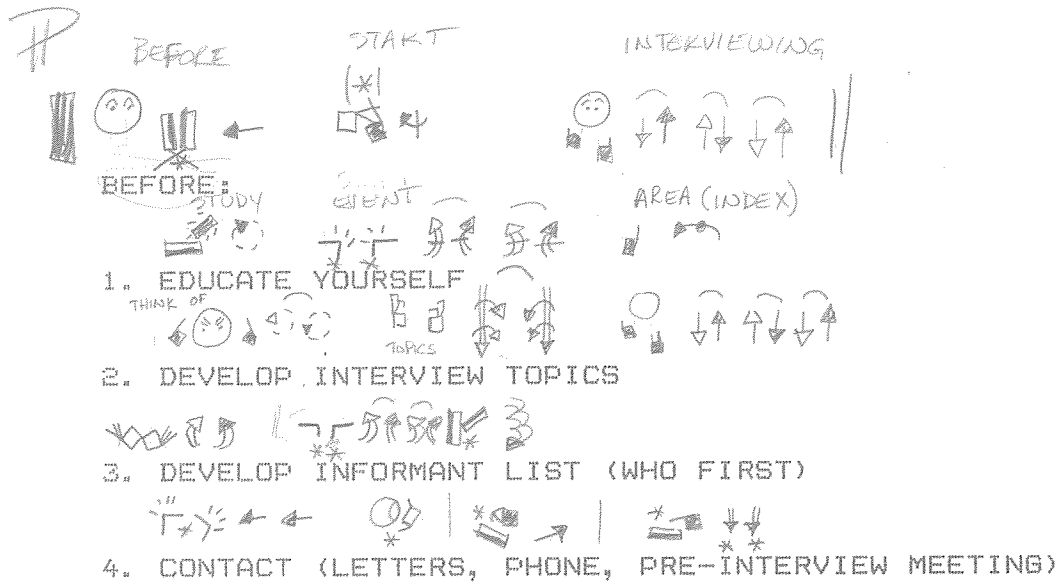 BEFORE START INTERVIEWING
BEFORE:
STUDY EVENT AREA (INDEX)
1. EDUCATE YOURSELF
THINK OF
TOPICS
2. DEVELOP INTERVIEW TOPICS
3. DEVELOP INFORMANT LIST (WHO FIRST)
4. CONTACT (LETTERS, PHONE, PRE-INTERVIEW MEETING)